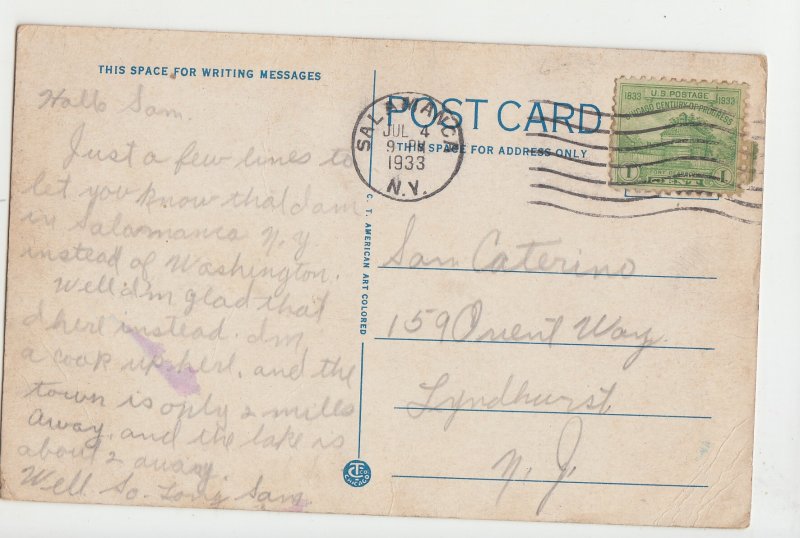 THIS SPACE FOR WRITING MESSAGES
Hallo Sam
Just a few lines to
let you know that I am
in Salamanca N.Y
instead of Washington.
Well I'm glad that
I here instead. I'm
a cook up here, and the
town is only 2 mills
away, and the lake is
about 2 away
Well So. Long Sam
C. T. AMERICAN ART COLORED
CHICAGO
POST CARD
THIS SPACE FOR ADDRESS ONLY
SALAMANCA
JUL 4
9 PM
1933
N.Y.
U.S. POSTAGE
1833 1933
CENTURY OF PROGRESS
1 CENT 1
Sam Caterino
159 Orient Way
Lyndhurst
N. J.